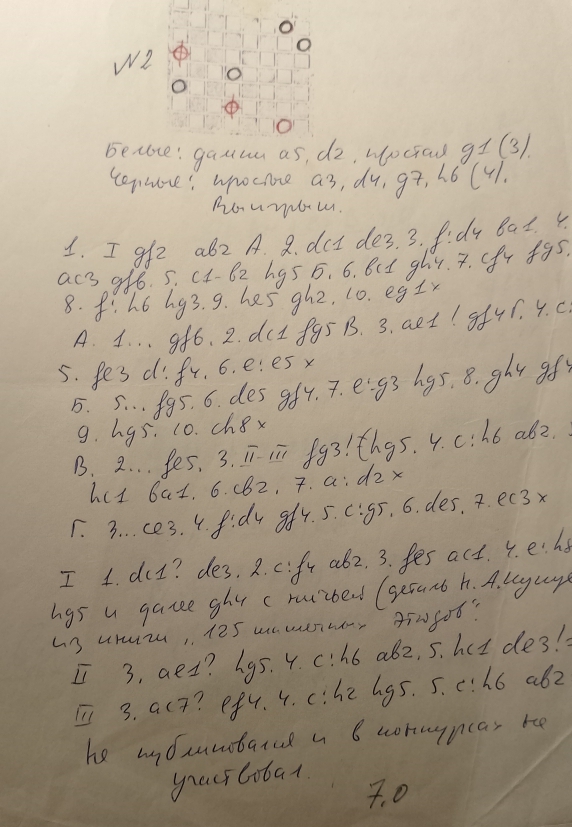 N2
Белые: дамки a5, d2, простая g1 (3).
Черные: простые a3, d4, g7, h6 (4).
Выигрыш.
1. I gf2 ab2 A. 2. dc1 de3. 3. f:d4 ba1. 4.
ac3 gf6. 5. c1-b2 hg5 Б. 6. bc1 gh4. 7. cf4 fg5.
8. f:h6 hg3. 9. he5 gh2. 10. eg1x
A. 1... gf6. 2. dc1 fg5 В. 3. ae1! gf4 Г. 4. c:
5. fe3 d:f4. 6. e:e5 x
Б. 5... fg5. 6. de5 gf4. 7. e:g3 hg5. 8. gh4 gf4
9. hg5. 10. ch8x
В. 2... fe5. 3. II-III fg3! (hg5. 4. c:h6 ab2.
hc1 ba1. 6. cb2. 7. a:d2x
Г. 3... ce3. 4. f:d4 gf4. 5. c:g5. 6. de5. 7. ec3x
I 1. dc1? de3. 2. c:f4 ab2. 3. fe5 ac1. 4. e:h8
hg5 и далее gh4 с ничьей (деталь Н. А.
из книги „125 шашечных этюдов".
II 3. ae1? hg5. 4. c:h6 ab2. 5. hc1 de3!=
III 3. ac7? ef4. 4. c:h2 hg5. 5. c:h6 ab2
Не публиковался и в конкурсах не
участвовал.
7.0